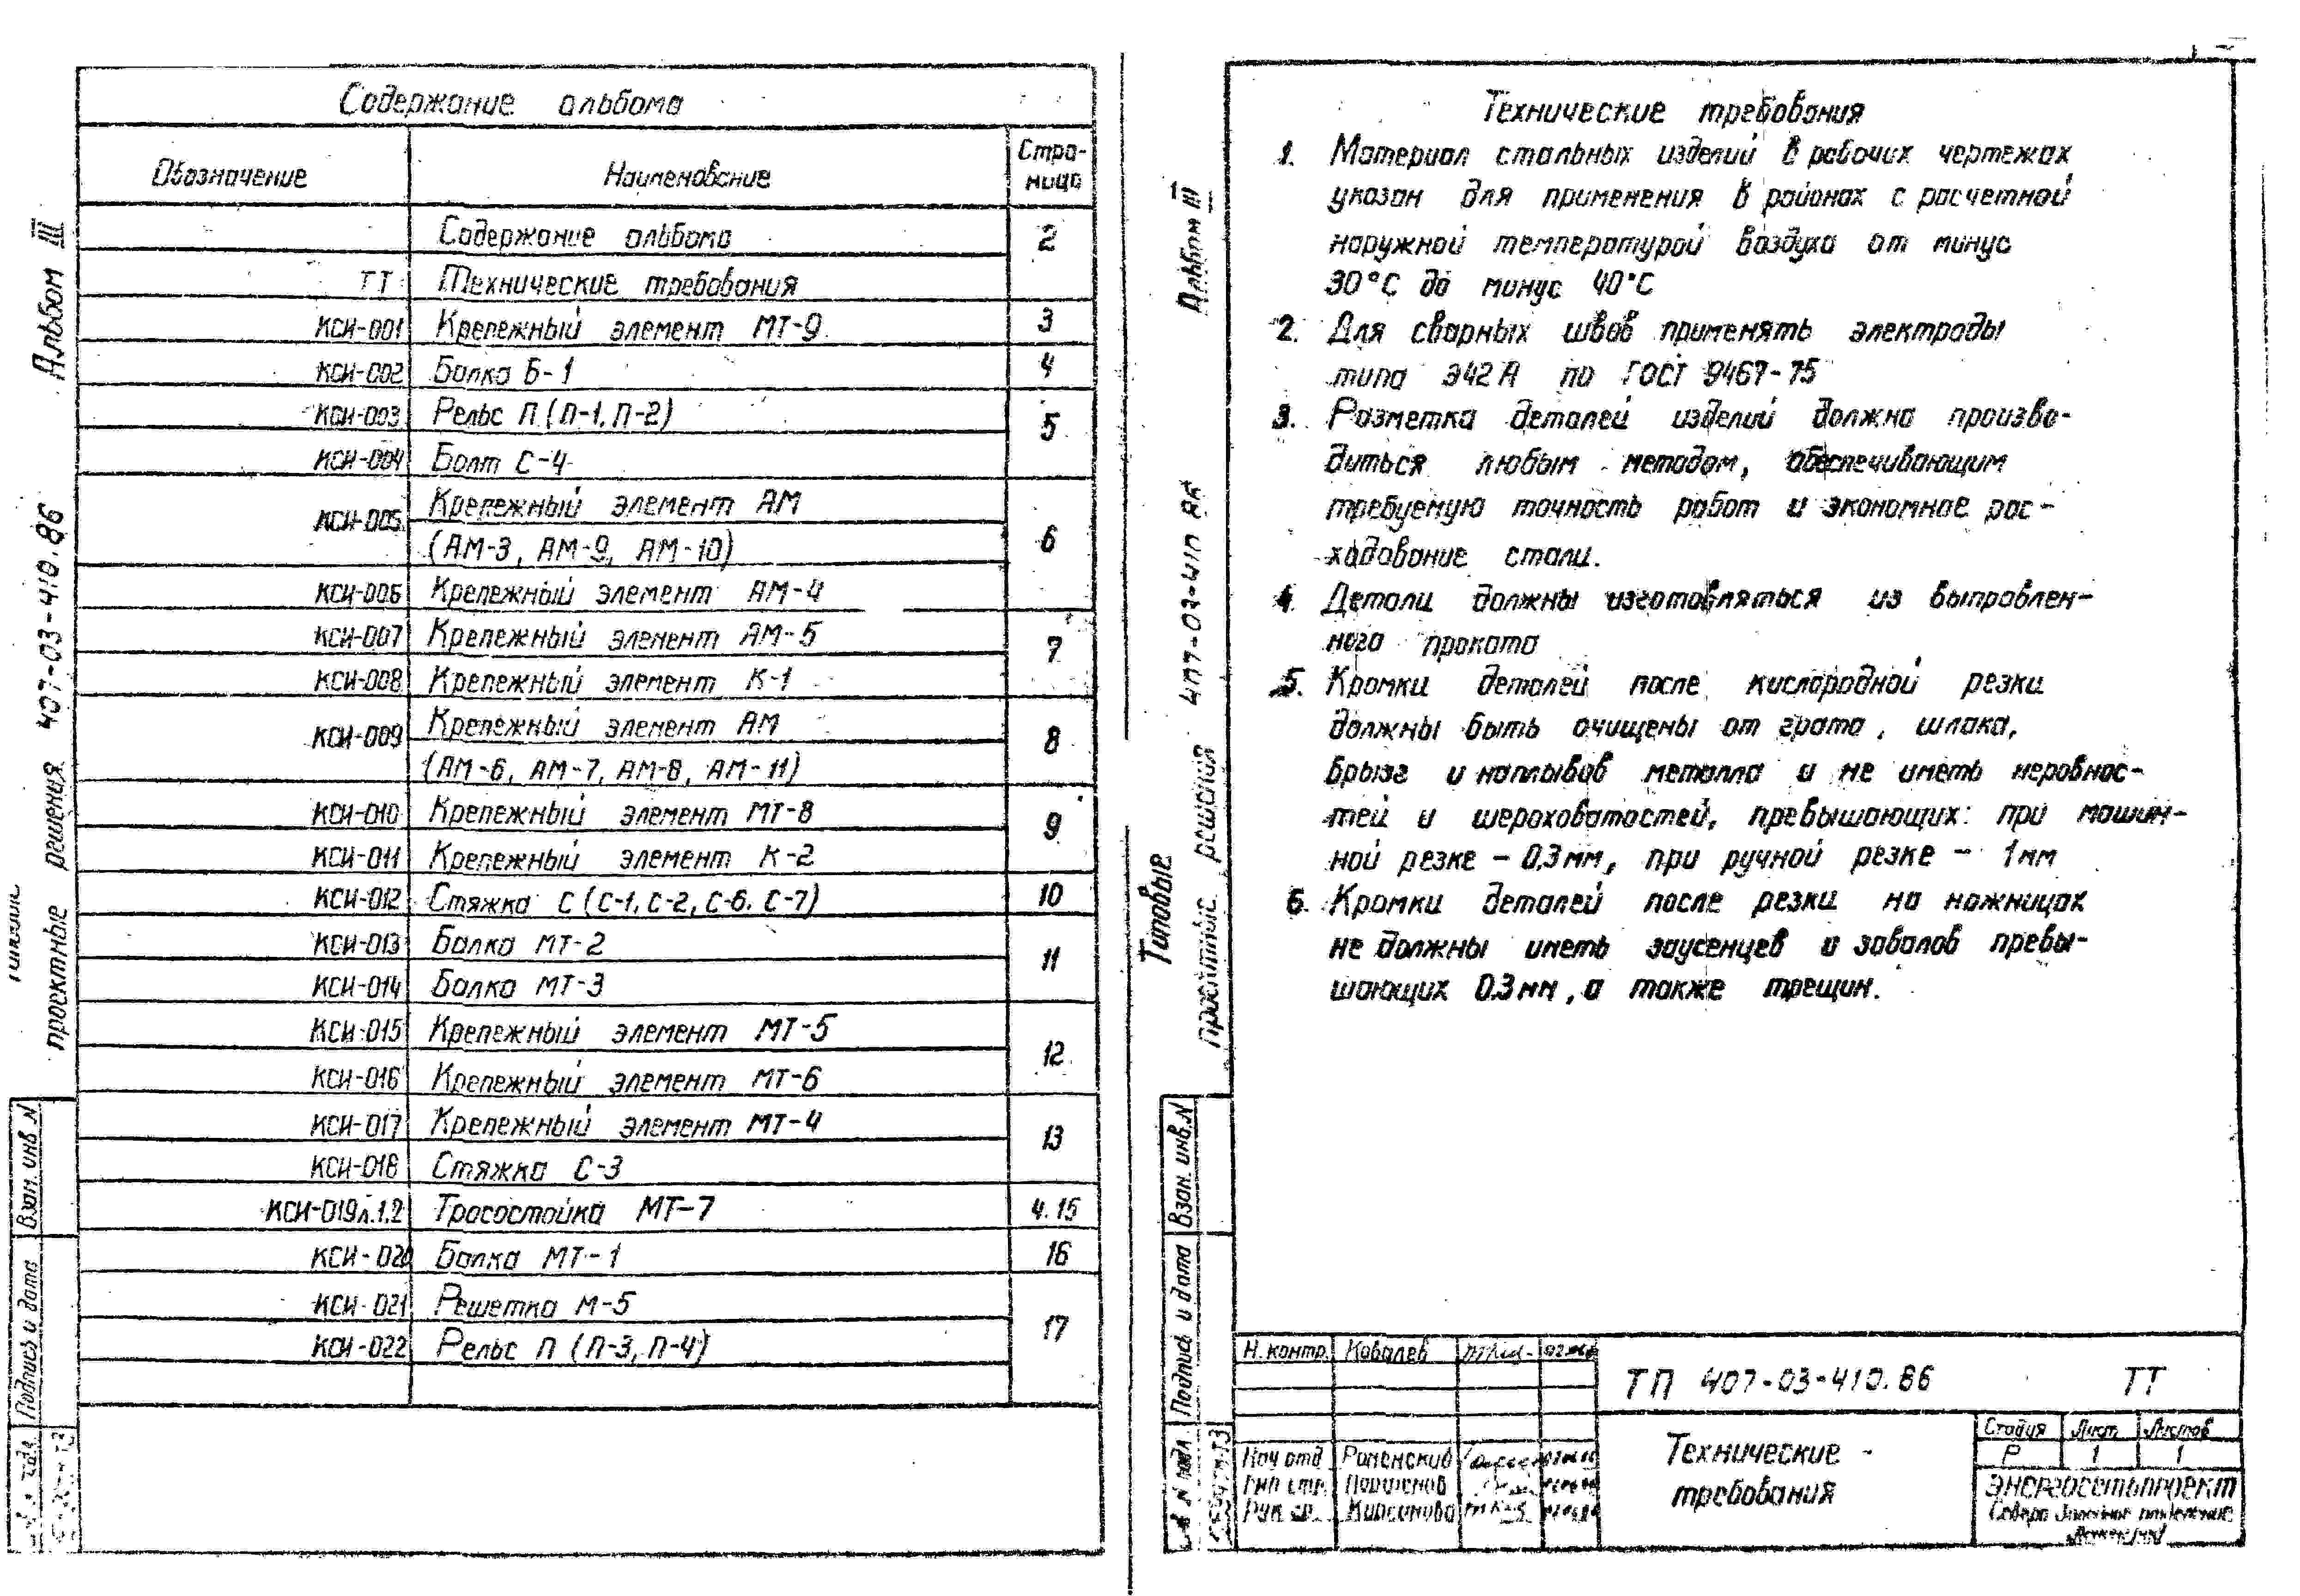 Содержание альбома
Обозначение Наименование Стра-
ница
Содержание альбома 2
ТТ Технические требования
КСИ-001 Крепежный элемент МТ-9 3
КСИ-002 Балка Б-1 4
КСИ-003 Рельс П (П-1, П-2) 5
КСИ-004 Болт С-4
КСИ-005 Крепежный элемент АМ 6
(АМ-3, АМ-9, АМ-10)
КСИ-006 Крепежный элемент АМ-4
КСИ-007 Крепежный элемент АМ-5 7
КСИ-008 Крепежный элемент К-1
КСИ-009 Крепежный элемент АМ 8
(АМ-6, АМ-7, АМ-8, АМ-11)
КСИ-010 Крепежный элемент МТ-8 9
КСИ-011 Крепежный элемент К-2
КСИ-012 Стяжка С (С-1, С-2, С-6. С-7) 10
КСИ-013 Балка МТ-2 11
КСИ-014 Балка МТ-3
КСИ-015 Крепежный элемент МТ-5 12
КСИ-016 Крепежный элемент МТ-6
КСИ-017 Крепежный элемент МТ-4 13
КСИ-018 Стяжка С-3
КСИ-019л.1,2 Тросостойка МТ-7 4.15
КСИ-020 Балка МТ-1 16
КСИ-021 Решетка М-5 17
КСИ-022 Рельс П (П-3, П-4)
Альбом III
проектные решения 407-03-410.86
Взам. инв. N
Подпись и дата
Технические требования
1. Материал стальных изделий в рабочих чертежах
указан для применения в районах с расчетной
наружной температурой воздуха от минус
30°С до минус 40°С
2. Для сварных швов применять электроды
типа Э42А по ГОСТ 9467-75
3. Разметка деталей изделий должна произво-
диться любым методом, обеспечивающим
требуемую точность работ и экономное рас-
ходование стали.
4. Детали должны изготовляться из выправлен-
ного проката
5. Кромки деталей после кислородной резки
должны быть очищены от грата, шлака,
брызг и наплывов металла и не иметь неровнос-
тей и шероховатостей, превышающих: при машин-
ной резке - 0,3мм, при ручной резке - 1мм
6. Кромки деталей после резки на ножницах
не должны иметь заусенцев и завалов превы-
шающих 0.3мм, а также трещин.
Альбом III
Типовые
проектные решения
Взам. инв. N
Подпись и дата
N подл.
Н. контр. Ковалев
Нач отд Роменский
Рук гр. Кирсанова
ТП 407-03-410.86 ТТ
Технические
требования
Стадия Лист Листов
Р 1 1
ЭНЕРГОСЕТЬПРОЕКТ
Северо-Западное отделение
Ленинград